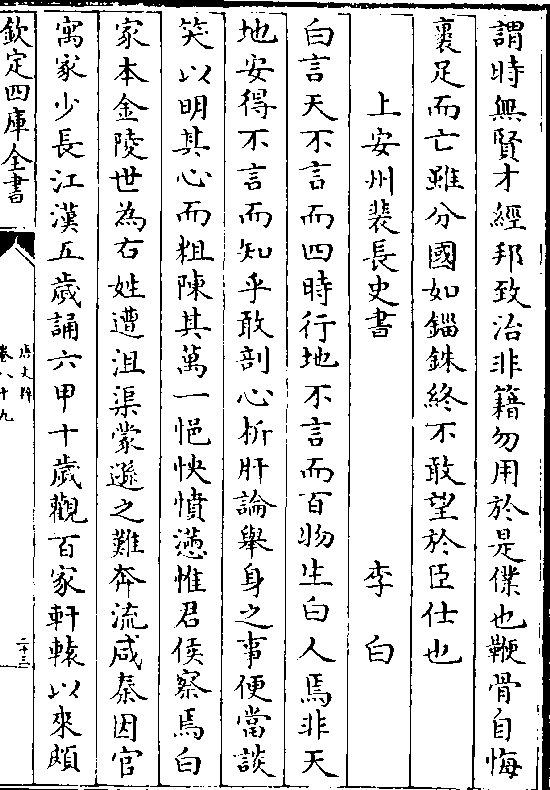 謂時無賢才經邦致治非籍勿用於是僕也鞭骨自悔
裹足而亡雖分國如錙銖終不敢望於臣仕也
上安州裴長史書 李白
白言天不言而四時行地不言而百物生白人焉非天
地安得不言而知乎敢剖心析肝論舉身之事便當談
笑以明其心而粗陳其萬一悒怏憤懣惟君侯察焉白
家本金陵世為右姓遭沮渠蒙遜之難奔流咸秦因官
寓家少長江漢五歲誦六甲十歲觀百家軒轅以來頗
欽定四庫全書
卷八十九
二十三